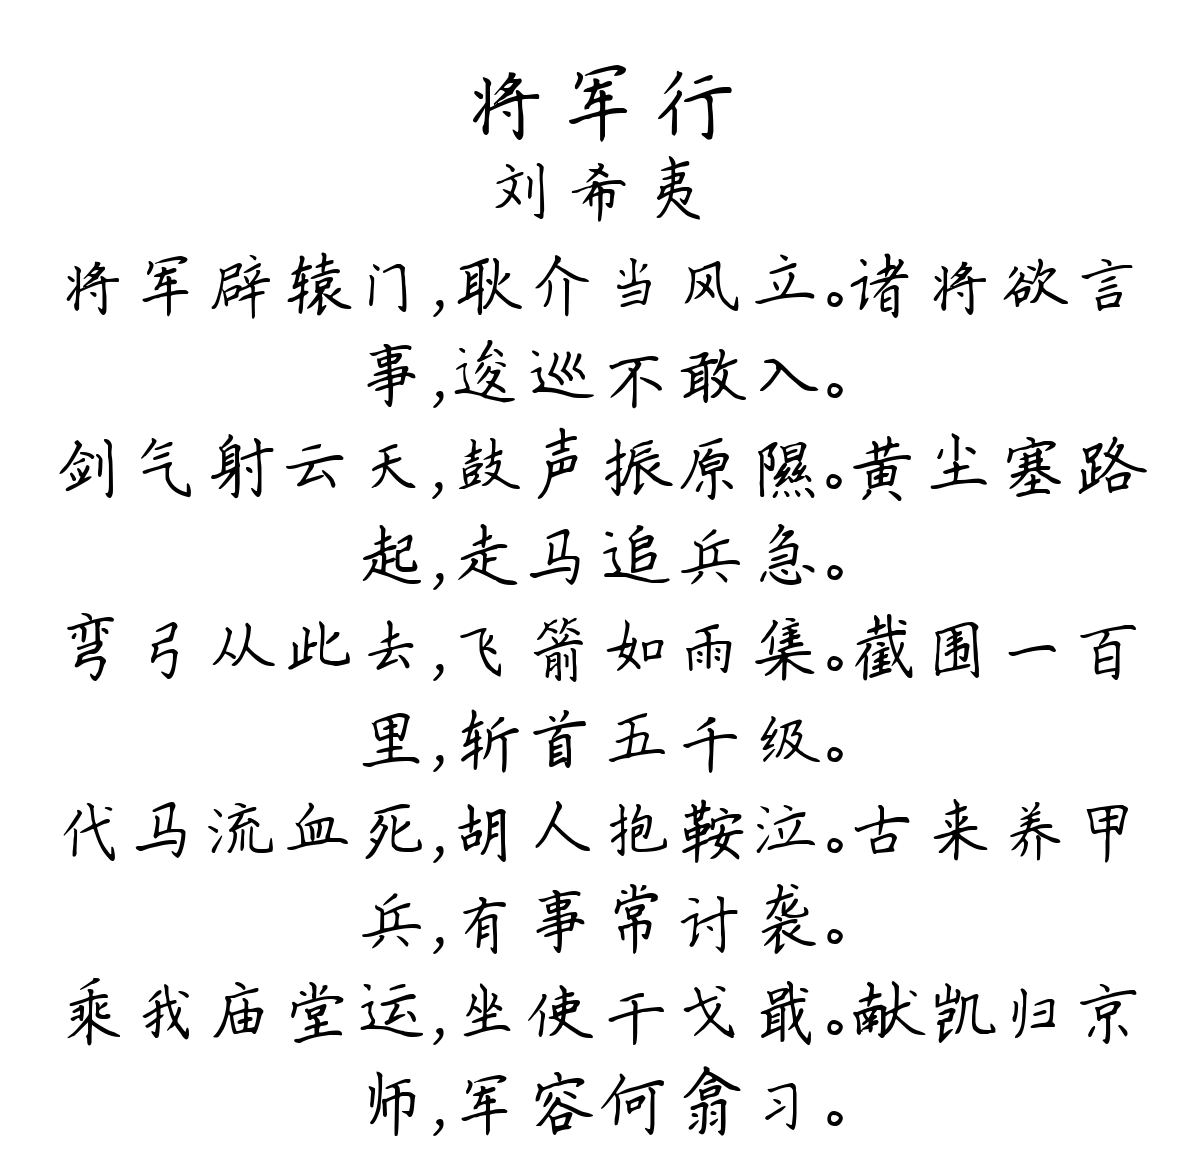 将军行
刘希夷
将军辟辕门,耿介当风立。诸将欲言
事,逡巡不敢入。
剑气射云天,鼓声振原隰。黄尘塞路
起,走马追兵急。
弯弓从此去,飞箭如雨集。截围一百
里,斩首五千级。
代马流血死,胡人抱鞍泣。古来养甲
兵,有事常讨袭。
乘我庙堂运,坐使干戈戢。献凯归京
师,军容何翕习。